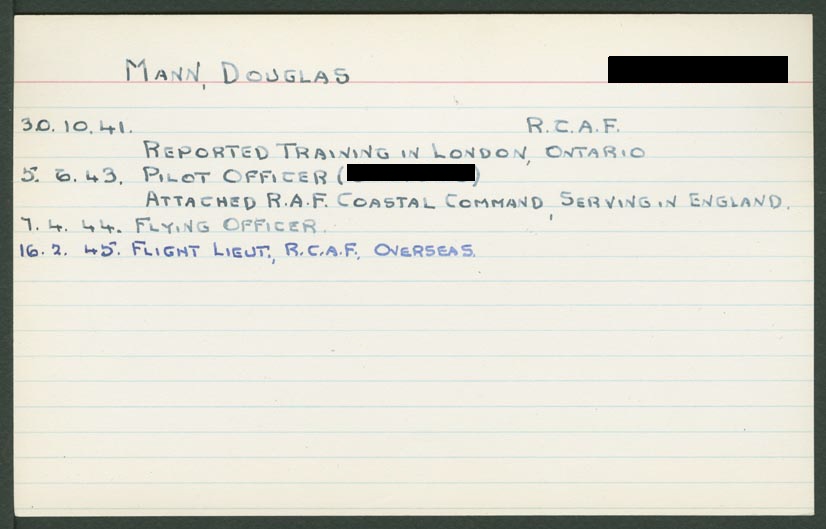 MANN, DOUGLAS
30.10.41. R.C.A.F.
REPORTED TRAINING IN LONDON, ONTARIO
5. 6. 43. PILOT OFFICER ( )
ATTACHED R.A.F. COASTAL COMMAND, SERVING IN ENGLAND.
7. 4. 44. FLYING OFFICER.
16. 2. 45. FLIGHT LIEUT., R.C.A.F., OVERSEAS.